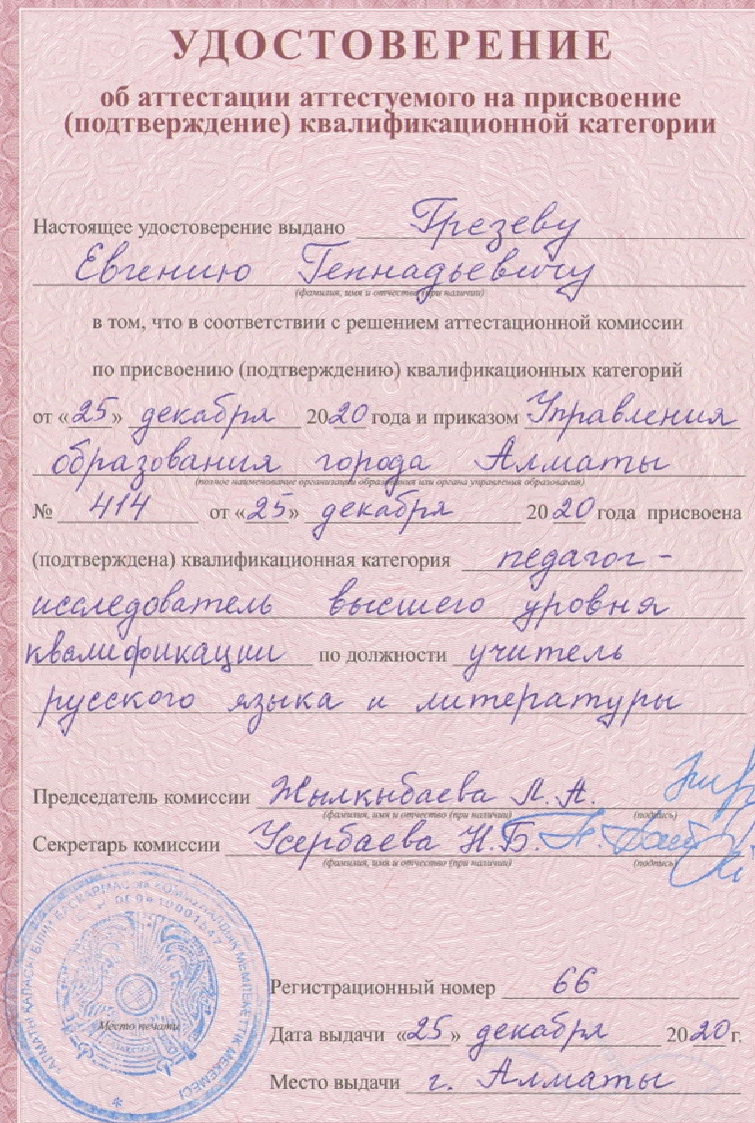 УДОСТОВЕРЕНИЕ
об аттестации аттестуемого на присвоение
(подтверждение) квалификационной категории
Настоящее удостоверение выдано Грезеву
Евгению Геннадьевичу
(фамилия, имя и отчество (при наличии)
в том, что в соответствии с решением аттестационной комиссии
по присвоению (подтверждению) квалификационных категорий
от «25» декабря 2020 года и приказом Управления
образования города Алматы
(полное наименование организации образования или органа управления образования)
№ 414 от «25» декабря 2020 года присвоена
(подтверждена) квалификационная категория педагог -
исследователь высшего уровня
квалификации по должности учитель
русского языка и литературы
Председатель комиссии Жылкыбаева Л. А.
(фамилия, имя и отчество (при наличии) (подпись)
Секретарь комиссии Усербаева Н.Б.
(фамилия, имя и отчество (при наличии) (подпись)
Место печати
Регистрационный номер 66
Дата выдачи «25» декабря 2020 г.
Место выдачи г. Алматы